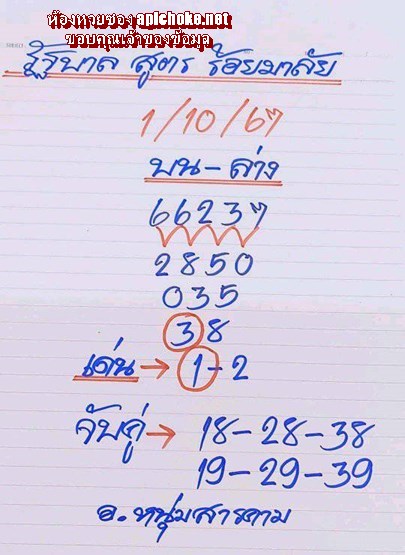 ห้องหวยซอง apichoke.net
ขอบคุณเจ้าของข้อมูล
รัฐบาล สูตร ร้อยมาลัย
1/10/67
บน-ล่าง
66237
2850
035
38
เด่น → 1-2
จับคู่ → 18-28-38
19-29-39
อ.หนุ่มสารคาม